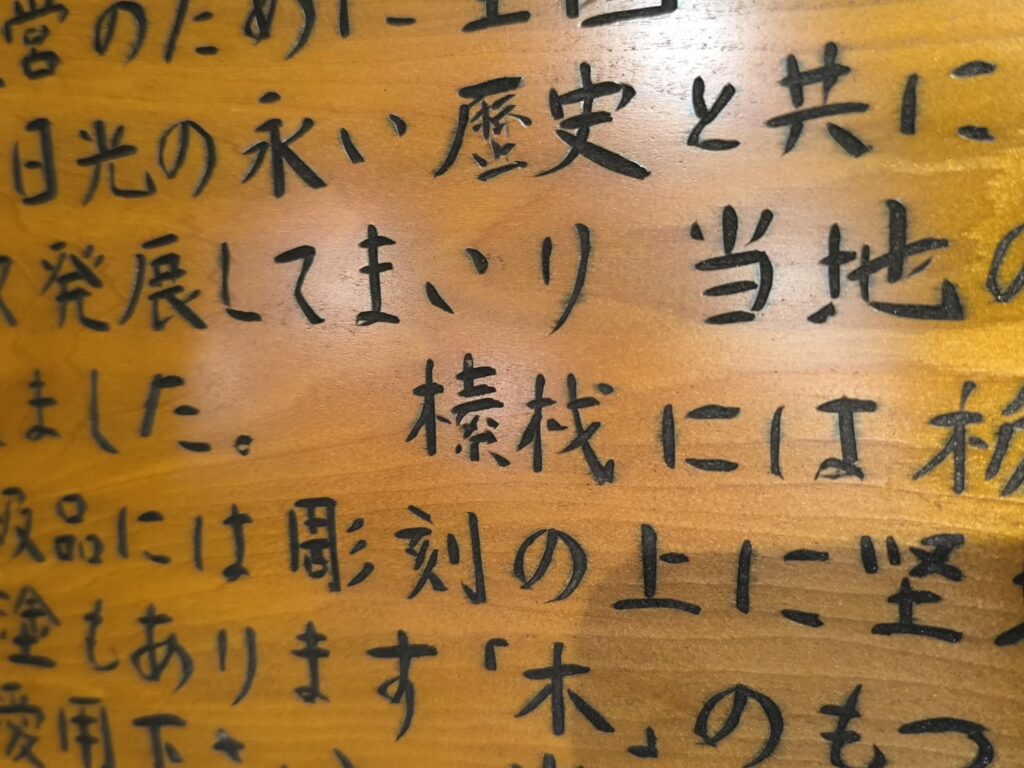 営のために
日光の永い歴史と共に
発展してまいり当地の
ました。 には
級品には彫刻の上に堅
塗もあります「木」のもつ
愛用下さ